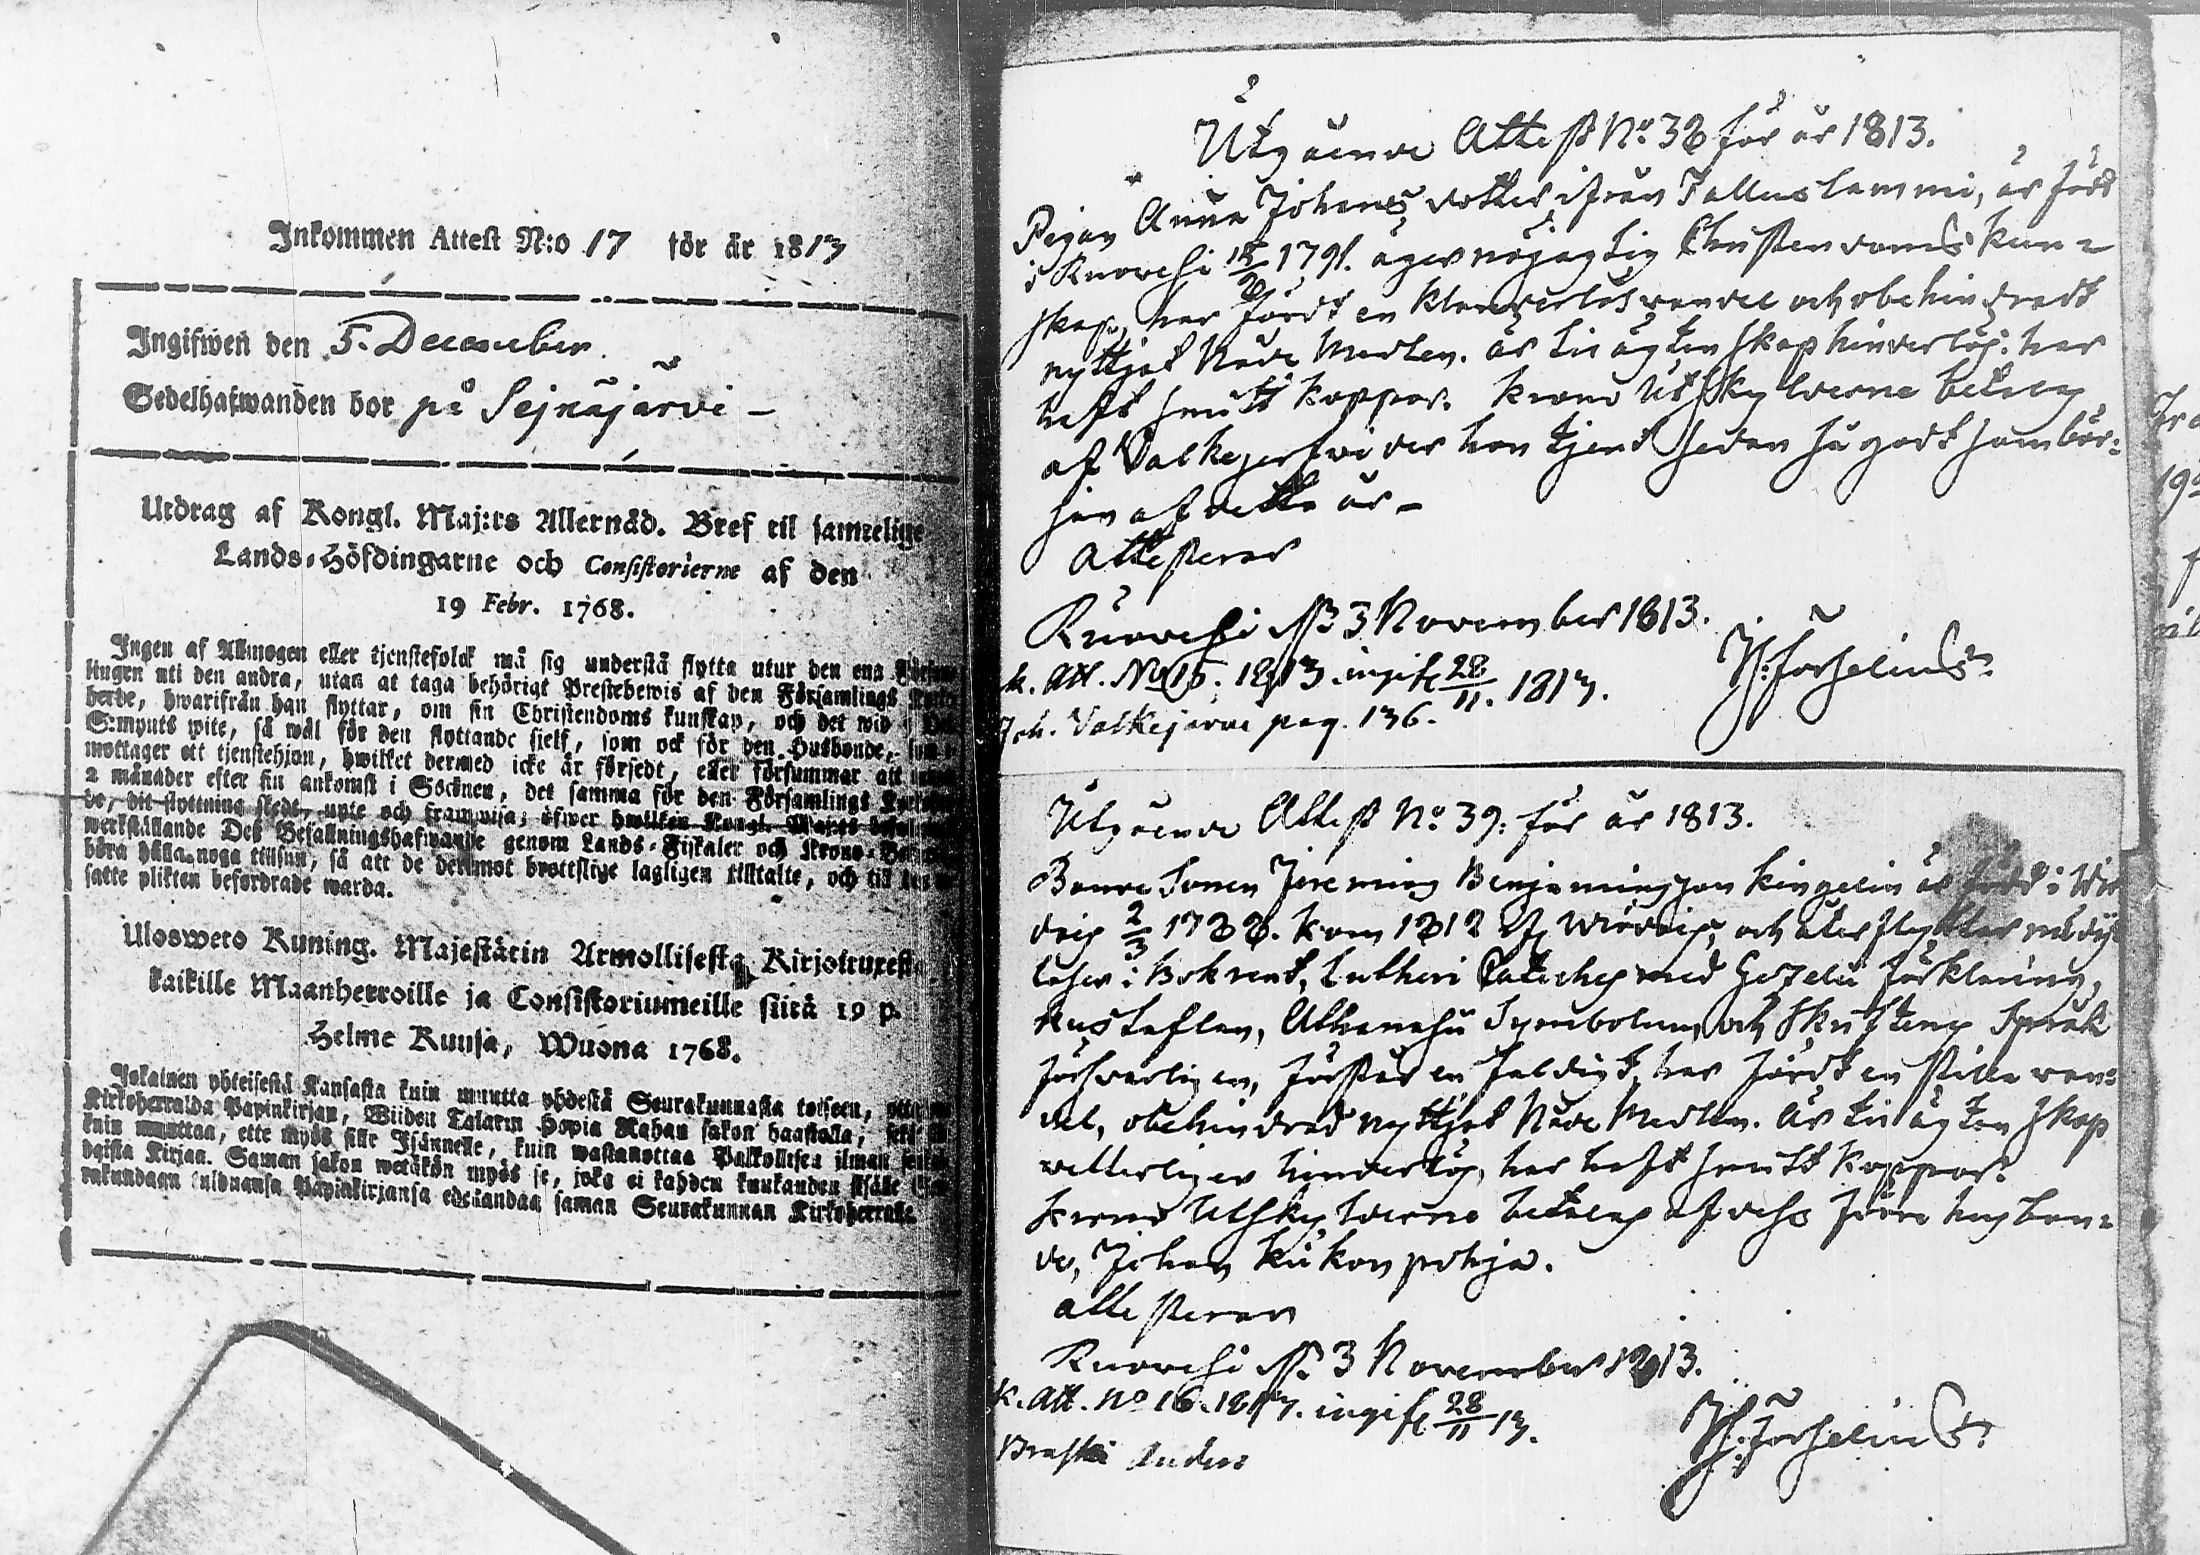 Inkommen Attest N:o 17 för år 1813
Ingifwen den 5. December.
Sedelhafwanden bor på Sejnäjärvi –
Utdrag af Kongl. Maj:ts Allernåd. Bref til samtelige
Lands-Höfdingarne och Consistorierne af den
19 Febr. 1768.
Ingen af Allmogen eller tjenstefolck må sig understå flytta utur den ena
lingen uti den andra, utan at taga behörigt Prestebewis af den Församlings
herde, hwarifrån han flyttar, om sin Christendoms kunskap, och det wid
S:mynts wite, så wäl för den flyttande sjelf, som ock för den Husbonde,
mottager ett tjenstehjon, hwilket dermed icke är försedt, eller försummar att
2 månader efter sin ankomst i Söcknen, det samma för den Församlings
de, dit flyttning skedt, upte och framwisa; öfwer hwilken Kongl. Maj:ts
werkställande Deß Befallningshafwande genom Lands-Fiskaler och Krono-
böra hålla noga tillsyn, så att de deremot brottslige lagligen tilltalte, och till
satte plikten befordrade warda.
Ulosweto Kuning. Majestätin Armollisesta Kirjotuxesta
kaikille Maanherroille ja Consistoriumeille siitä 19 p.
Helme Kuusa, Wuona 1768.
Jokainen yhteisestä Kansasta kuin muutta yhdestä Seurakunnasta toiseen,
Kirkoherralda Papinkirjan, Wiiden Talarin Hopia Rahan sakon haastolla,
kuin muuttaa, ette myös sille Isännelle, kuin wastanottaa Palkollisen ilman
pgista Kirjan. Saman sakon wetäkön myös se, joka ei kahden kuukauden sisälle
rakundaan tulduansa Papinkirjansa edestandaa saman Seurakunnan Kirkoherralle
Utgående Attest No: 38 för år 1813.
Pigan Anna Johans dotter ifrån Tallus lammi, är född
i Ruovesi 1791. äger nöjagtig Christendoms kun=
skap, har fördt en klanderlös vandel och obehindradt
nyttjat Nåde Medlen. är til ägtenskap hinderlös: har
haft smitt koppor. Krono Utskylderne betalas
af Valkejerfvi der hon tjent sedan så godt som bör=
jan af detta år –
Attesteras
Ruovesi d. 3 November 1813.
Hs: Forselius
k. Att. No 15. 1813. ingifv. 28/11. 1813.
Joh. Valkejärvi pag. 136.
Utgående Attest No: 39: för år 1813.
Bonde Sonen Jeremias Benjaminsson Ringelin är född i Wir
dois 2/3 1788. kom 1812 ifr. Wirdois, och återflyttar nu dit
läser i Bok rent, Lutheri Cateches med Gezelii förklaring,
Hustaflan, Athanasii Symbolum och Skriftens Språk
försvarligen, förstår enfaldigt, har fördt en stilla van=
del, obehindrad nyttjat Nåde Medlen. är til ägtenskap
vetterligen hinderlös, har haft smitt koppor.
Krono Utskylderne betalas af dess förra husbon=
de, Johan Kukonpohja.
attesteras
Ruovesi d. 3 November 1813.
Hs: Forselius
k. Att. No 16. 1813. ingifv. 28/11 13.